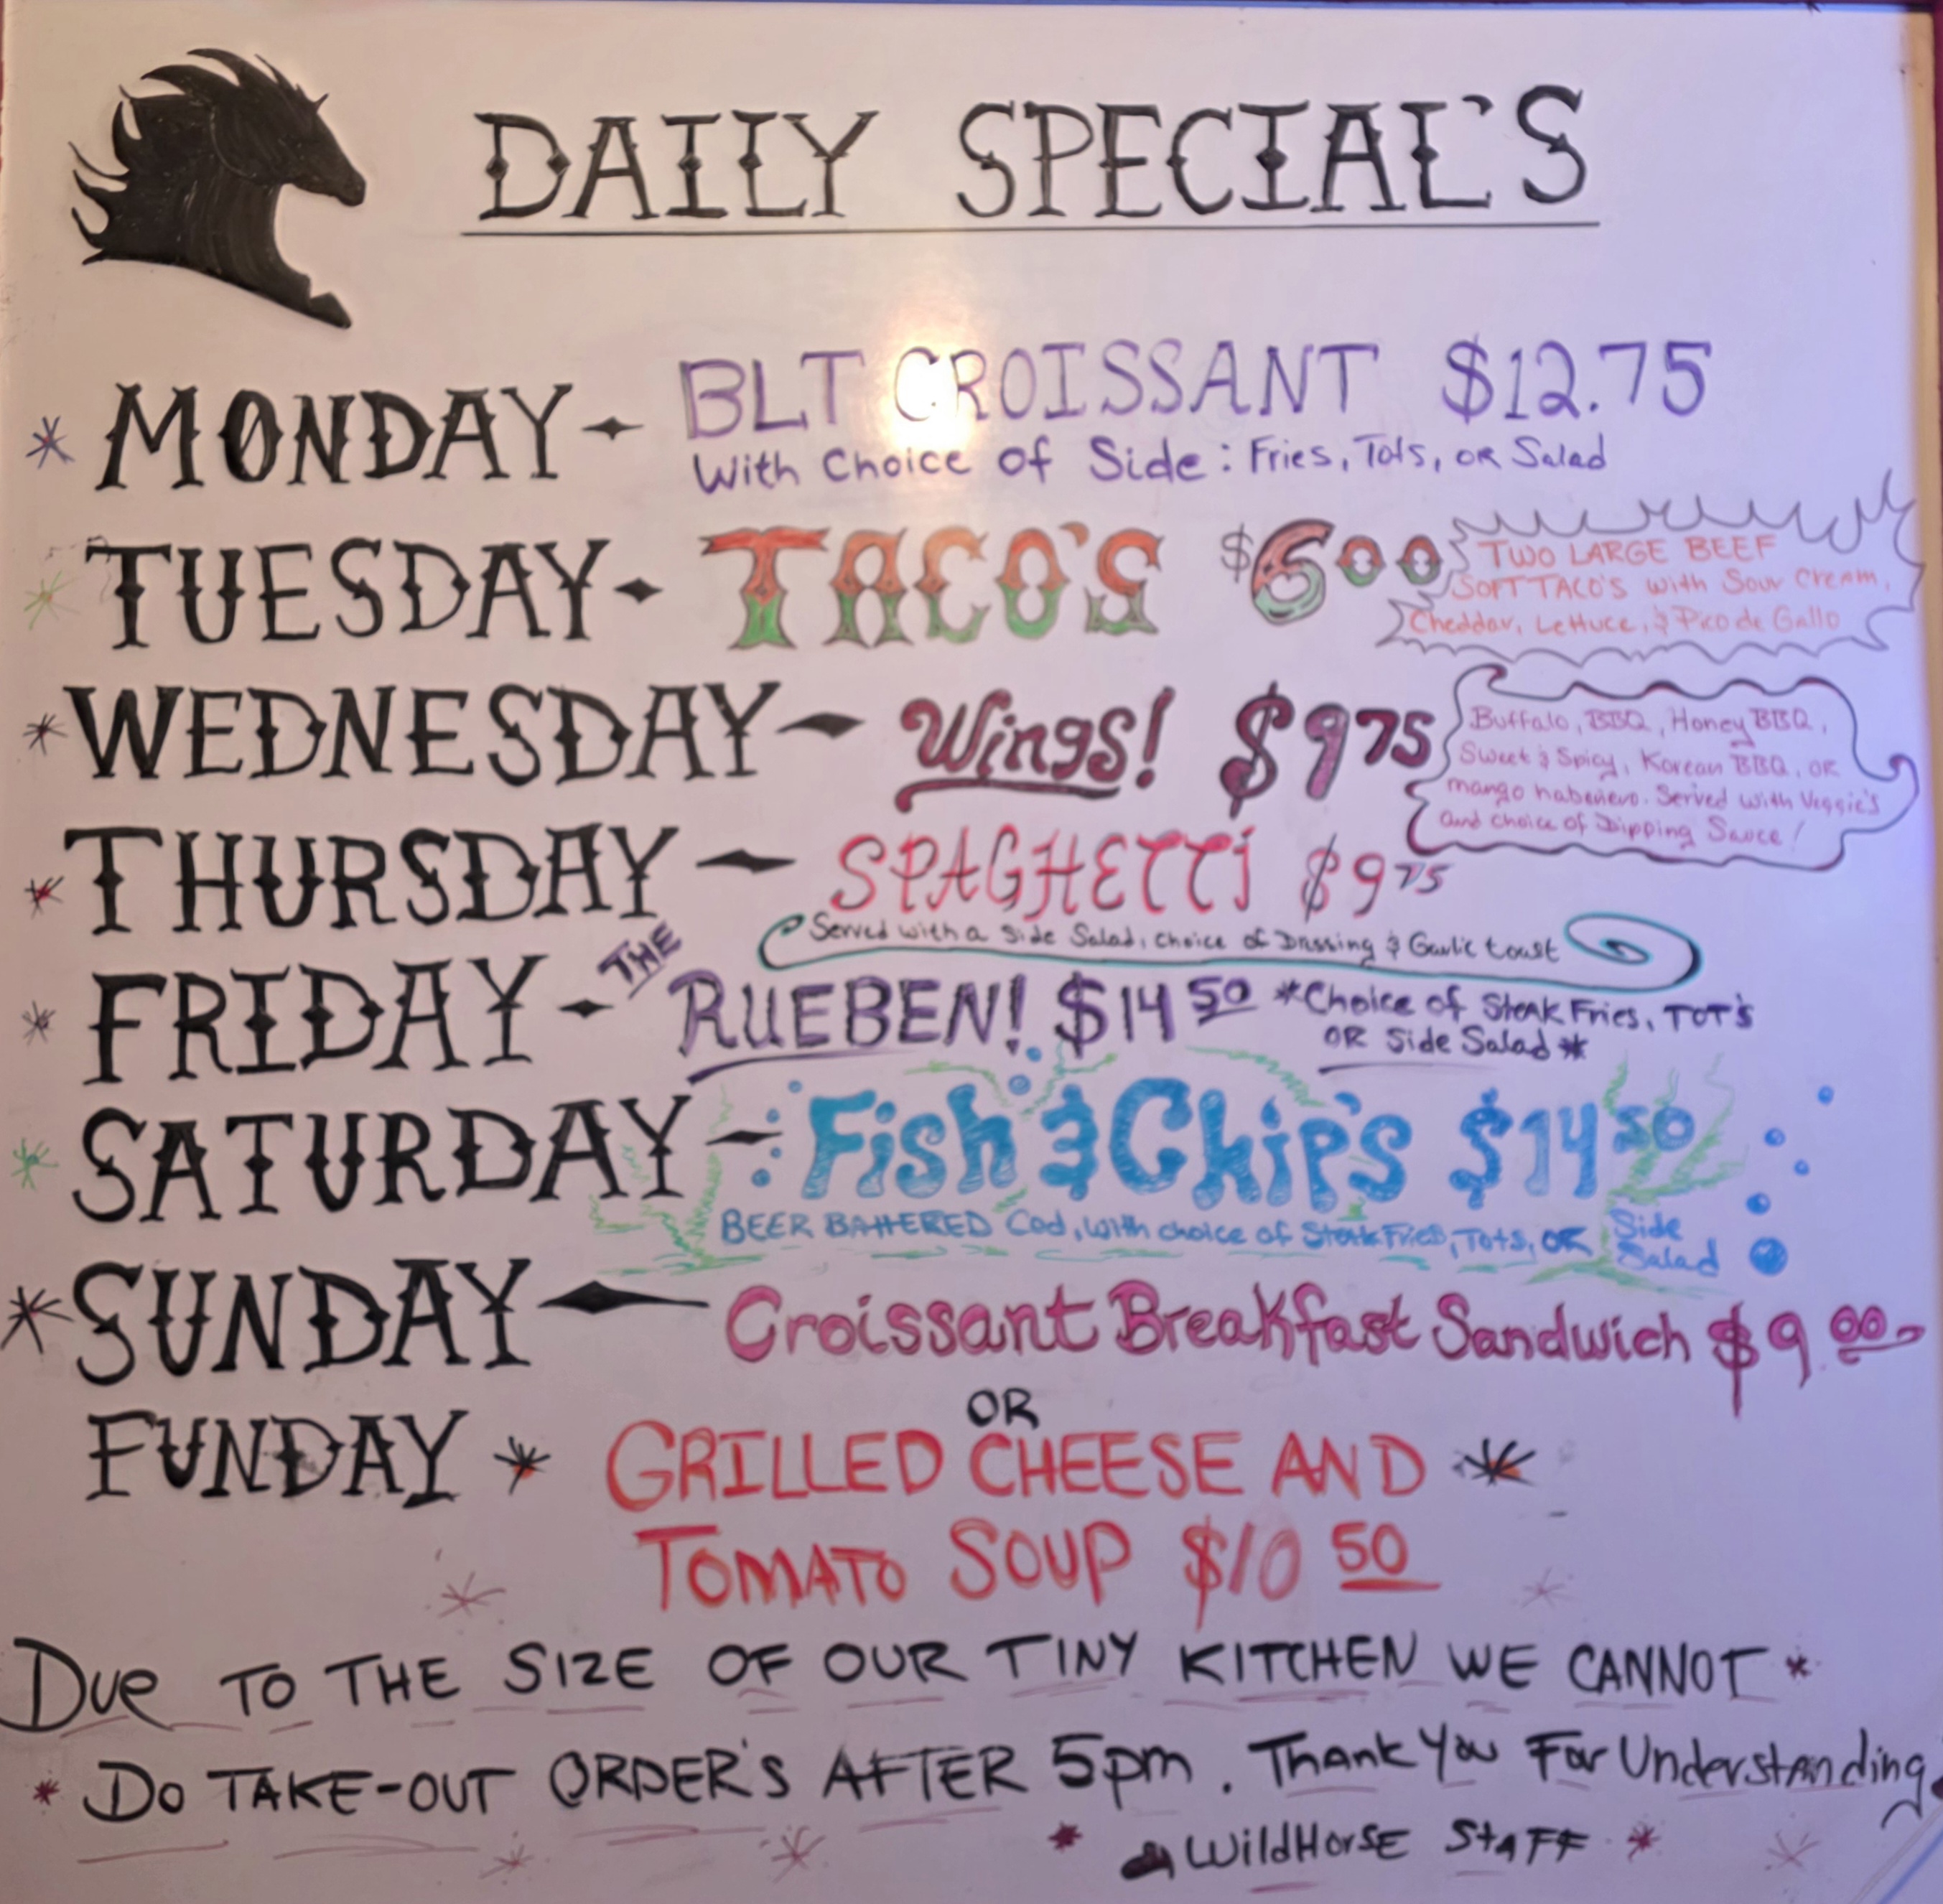 DAILY SPECIAL'S
MONDAY- BLT CROISSANT $12.75
With Choice of Side: Fries, Tots, OR Salad
TUESDAY- TACO'S $6 00
TWO LARGE BEEF
SOFT TACO'S with Sour Cream,
Cheddar, Lettuce, & Pico de Gallo
WEDNESDAY- Wings! $9 75
Buffalo, BBQ, Honey BBQ,
Sweet & Spicy, Korean BBQ, OR
mango habenero. Served with Veggie's
and choice of Dipping Sauce!
THURSDAY- SPAGHETTI $9 75
Served with a Side Salad, choice of Dressing & Garlic toast
FRIDAY- THE RUEBEN! $14 50 *Choice of Steak Fries, TOT'S
OR Side Salad*
SATURDAY- Fish & Chip's $14 50
BEER BATTERED Cod, with choice of Steak Fries, Tots, OR Side Salad
SUNDAY- Croissant Breakfast Sandwich $9.00
OR
FUNDAY * GRILLED CHEESE AND *
TOMATO SOUP $10 50
Due TO THE SIZE OF OUR TINY KITCHEN WE CANNOT *
* Do TAKE-OUT ORDER'S AFTER 5pm. Thank You For Understanding
WildHorse Staff